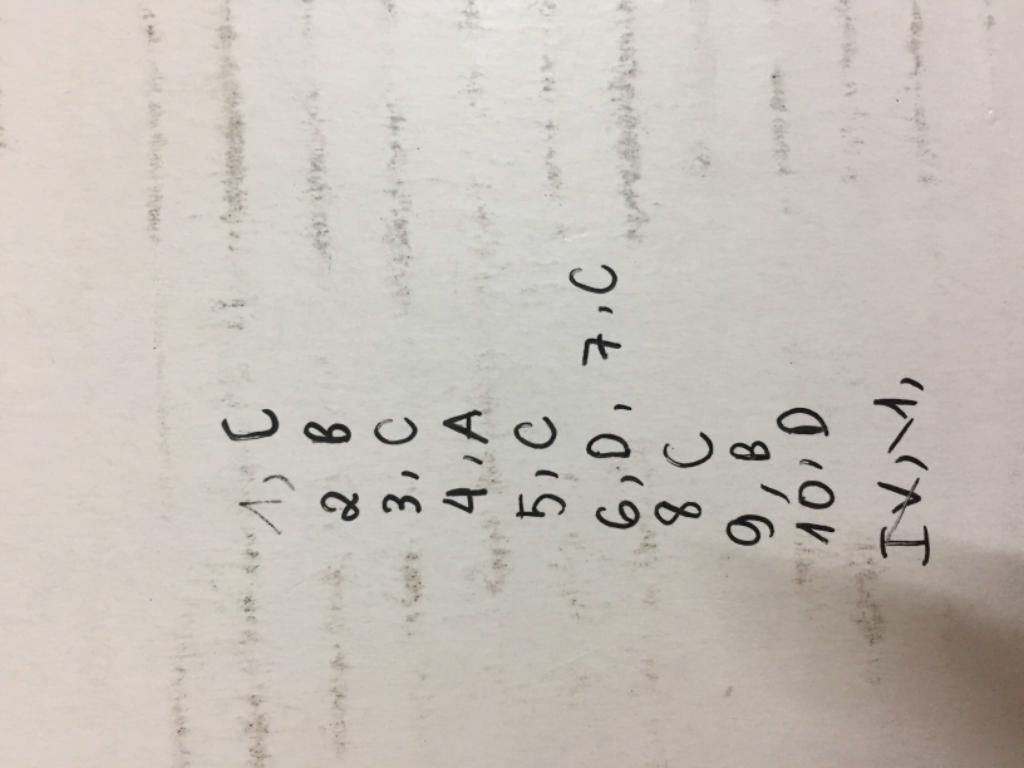 1, C
2 B
3, C
4, A
5, C
6, D, 7, C
8 C
9, B
10, D
IV, 1,